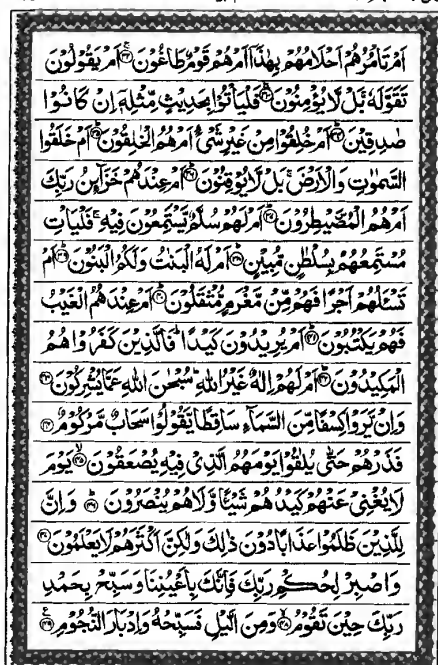 اَمْ تَاْمُرُهُمْ اَحْلَامُهُمْ بِهٰذَآ اَمْ هُمْ قَوْمٌ طَاغُوْنَ ۚ﴿۳۲﴾ اَمْ يَقُوْلُوْنَ
تَقَوَّلَهٗ ۚ بَلْ لَّا يُؤْمِنُوْنَ ۚ﴿۳۳﴾ فَلْيَاْتُوْا بِحَدِيْثٍ مِّثْلِهٖٓ اِنْ كَانُوْا
صٰدِقِيْنَ ؕ﴿۳۴﴾ اَمْ خُلِقُوْا مِنْ غَيْرِ شَیْءٍ اَمْ هُمُ الْخٰلِقُوْنَ ؕ﴿۳۵﴾ اَمْ خَلَقُوا
السَّمٰوٰتِ وَالْاَرْضَ ۚ بَلْ لَّا يُوْقِنُوْنَ ؕ﴿۳۶﴾ اَمْ عِنْدَهُمْ خَزَآىِٕنُ رَبِّكَ
اَمْ هُمُ الْمُصَۜيْطِرُوْنَ ؕ﴿۳۷﴾ اَمْ لَهُمْ سُلَّمٌ يَّسْتَمِعُوْنَ فِيْهِ ۚ فَلْيَاْتِ
مُسْتَمِعُهُمْ بِسُلْطٰنٍ مُّبِيْنٍ ؕ﴿۳۸﴾ اَمْ لَهُ الْبَنٰتُ وَلَكُمُ الْبَنُوْنَ ؕ﴿۳۹﴾ اَمْ
تَسْـَٔلُهُمْ اَجْرًا فَهُمْ مِّنْ مَّغْرَمٍ مُّثْقَلُوْنَ ؕ﴿۴۰﴾ اَمْ عِنْدَهُمُ الْغَيْبُ
فَهُمْ يَكْتُبُوْنَ ؕ﴿۴۱﴾ اَمْ يُرِيْدُوْنَ كَيْدًا ؕ فَالَّذِيْنَ كَفَرُوْا هُمُ
الْمَكِيْدُوْنَ ؕ﴿۴۲﴾ اَمْ لَهُمْ اِلٰهٌ غَيْرُ اللّٰهِ ؕ سُبْحٰنَ اللّٰهِ عَمَّا يُشْرِكُوْنَ ﴿۴۳﴾
وَاِنْ يَّرَوْا كِسْفًا مِّنَ السَّمَآءِ سَاقِطًا يَّقُوْلُوْا سَحَابٌ مَّرْكُوْمٌ ﴿۴۴﴾
فَذَرْهُمْ حَتّٰی يُلٰقُوْا يَوْمَهُمُ الَّذِیْ فِيْهِ يُصْعَقُوْنَ ۙ﴿۴۵﴾ يَوْمَ
لَا يُغْنِیْ عَنْهُمْ كَيْدُهُمْ شَيْـًٔا وَّلَا هُمْ يُنْصَرُوْنَ ؕ﴿۴۶﴾ وَاِنَّ
لِلَّذِيْنَ ظَلَمُوْا عَذَابًا دُوْنَ ذٰلِكَ وَلٰكِنَّ اَكْثَرَهُمْ لَا يَعْلَمُوْنَ ﴿۴۷﴾
وَاصْبِرْ لِحُكْمِ رَبِّكَ فَاِنَّكَ بِاَعْيُنِنَا وَسَبِّحْ بِحَمْدِ
رَبِّكَ حِيْنَ تَقُوْمُ ۙ﴿۴۸﴾ وَمِنَ الَّيْلِ فَسَبِّحْهُ وَاِدْبَارَ النُّجُوْمِ ﴿۴۹﴾